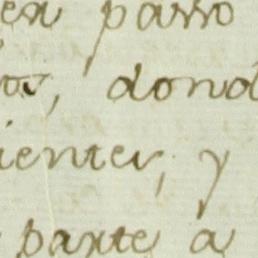 en passo
os, dond
ientes, y
parte a